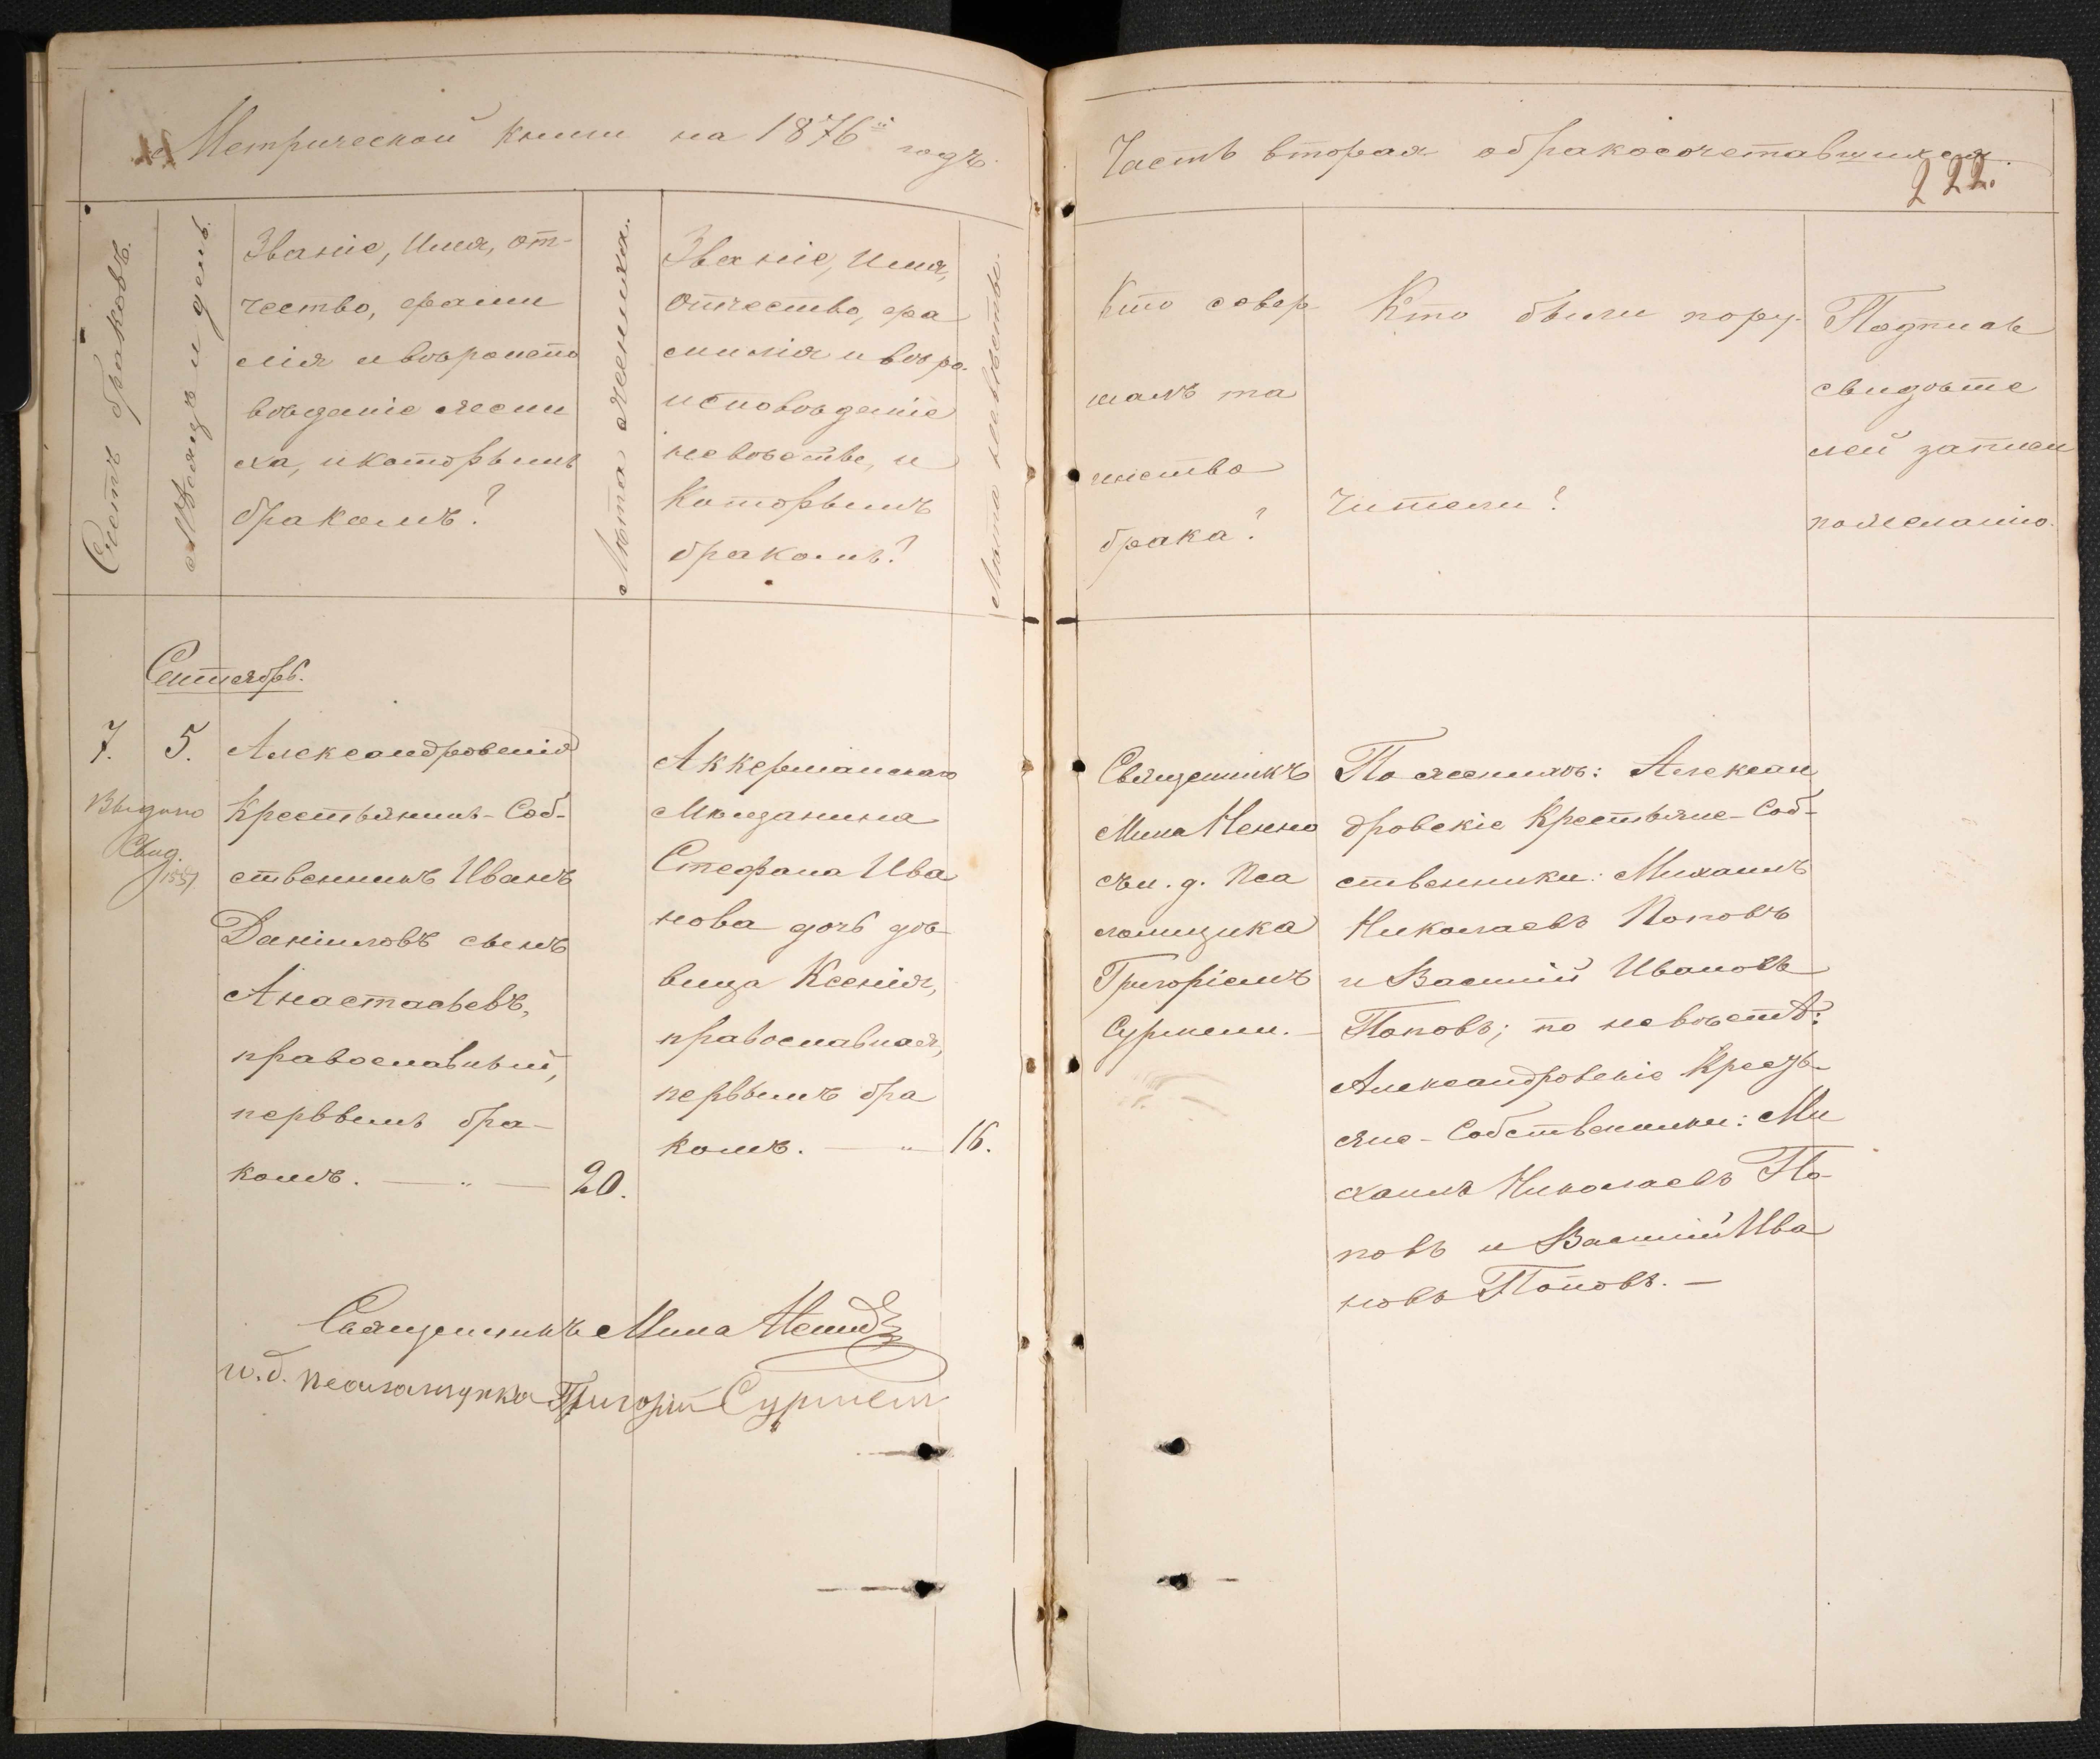 Метрической книги на 1876й годъ.
Часть вторая о бракосочетавшихся.
222.
Счетъ браковъ.
Мѣсяцъ и день.
Званіе, Имя, от-
чество, фами
лія и вѣроиспо
вѣданіе жени
ха, и которымъ
бракомъ?
Лѣта жениха.
Званіе, Имя,
Отчество, фа
милія и вѣро-
исповѣданіе
невѣсты, и
Которымъ
бракомъ?
Лѣта невѣсты.
Кто совер
шалъ та
инство
брака?
Кто были пору-
чители?
Подпись
свидѣте
лей записи
по желанію.
Сентябрь.
7. 5.
Выдано
Свид.
Александровскій
Крестьянинъ-Соб-
ственникъ Иванъ
Даніиловъ сынъ
Анастасьевъ,
православный,
первымъ бра-
комъ. — " — 20.
Аккерманскаго
Мѣщанина
Стефана Ива
нова дочь дѣ-
вица Ксенія,
православная,
первымъ бра
комъ. — " — 16.
Священникъ
Мина
съ и. д. Пса
ломщика
Григоріемъ
По женихѣ: Алексан
дровскіе Крестьяне-Соб-
ственники: Михаилъ
Николаевъ Поповъ
и Василій Ивановъ
Поповъ; по невѣстѣ:
Александровскіе Кресть-
яне-Собственники: Ми
хаилъ Николаевъ По-
повъ и Василій Ива
новъ Поповъ. —
Священникъ Мина
и. д. псаломщика Григорій